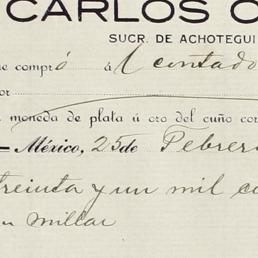 CARLOS O
SUCR. DE ACHOTEGUI
e compró á l contado
or
moneda de plata ú oro del cuño cor
México, 25 de Febrer
treinta y un mil c
n millar